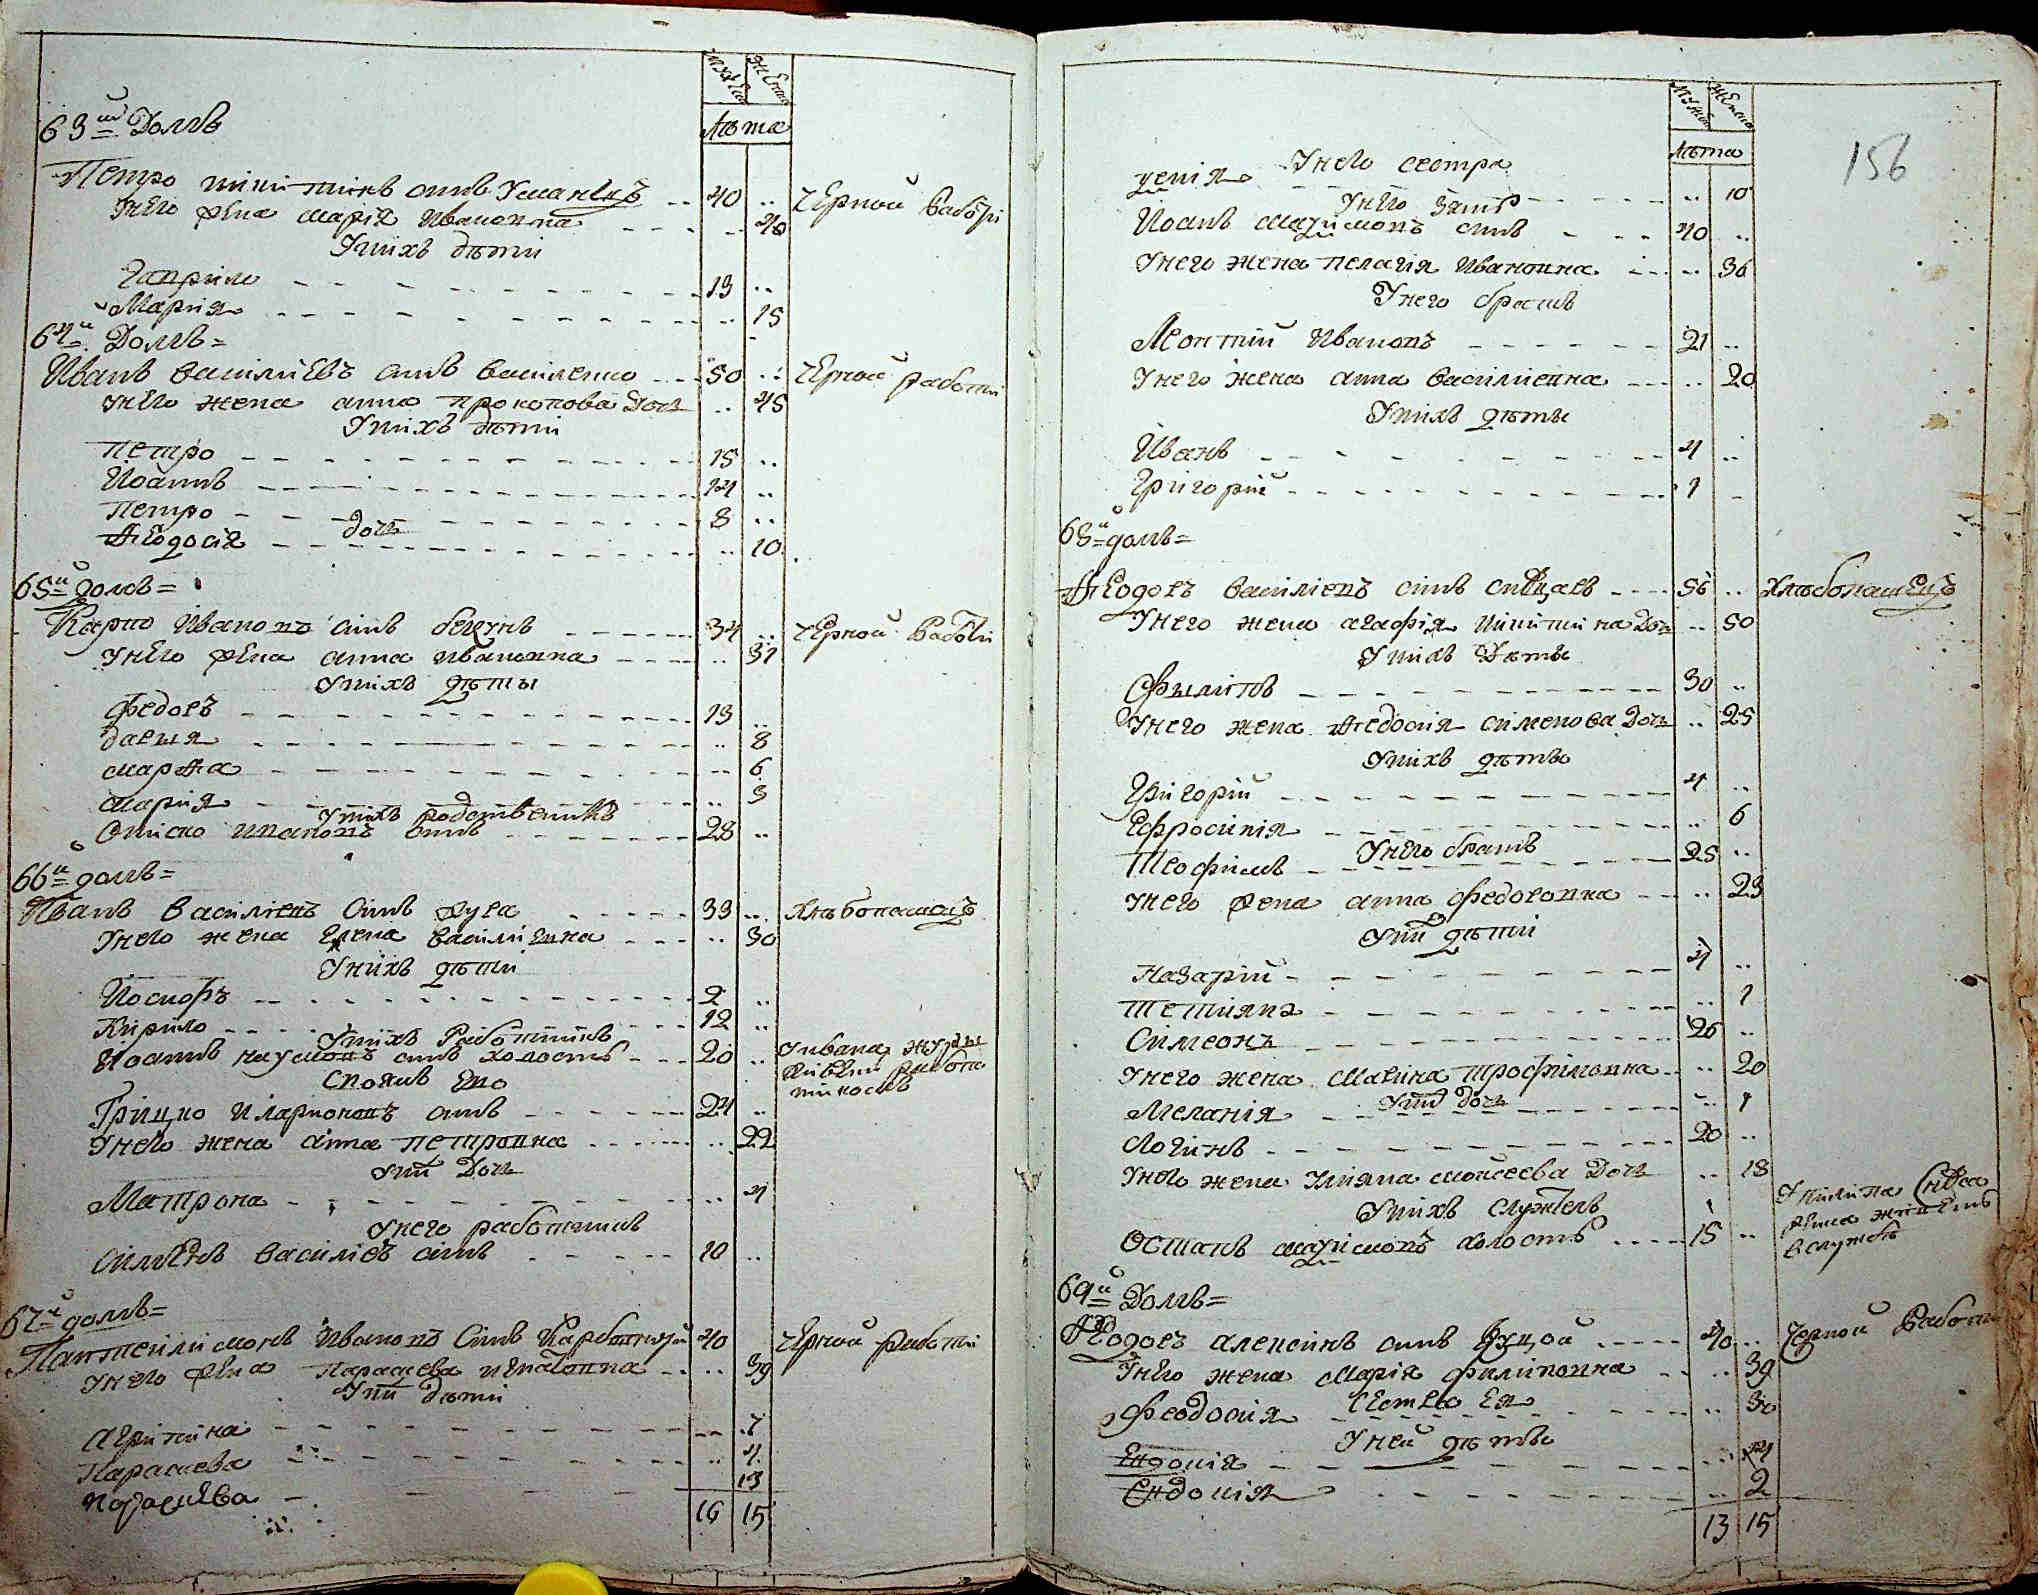 мужеска женска
лѣта
63й Домъ
Петро никитинъ синъ Уманецъ 40 .. чЕрной Работи
унЕго жена марія Ивановна .. 40
Унихъ дѣти
Гаврило 13 ..
Мария .. 15
64й Домъ=
Иванъ василиЕвъ синъ василенко 50 .. чЕрной работи
унЕго жена анна прокопова Доч .. 45
Унихъ дѣти
петро 15 ..
Иоаннъ 14 ..
Петро 8 ..
доч
Ѳеодосія .. 10
65й домъ=
Карпо Ивановъ синъ бегунъ 34 .. чЕрной Работи
унЕго жена анна ивановна .. 31
Унихъ дѣти
федоръ 13 ..
дария .. 8
марѳа .. 6
мария .. 3
Унихъ родственикъ
Ониско ивановъ синъ 28 ..
66й домъ=
Иванъ Василиевъ Синъ жура 33 .. хлѣбопашецъ
Унего жена Елена василиЕвна .. 30
Унихъ дѣти
Иосифъ 2 ..
Кирило 12 ..
Унихъ Работникъ
Иоаннъ наумовъ синъ холостъ 20 .. Уивана журы
живЕтъ работникомъ
Своякъ Его
Грицко Иларионовъ синъ 24 ..
Унего жена анна петровна .. 22
Унихъ Доч
Матрона .. 4
Унего работникъ
Симеонъ василиевъ синъ 10 ..
67й домъ=
Пантелимонъ Ивановъ Синъ 40 чЕрной работи
Унего жена Параскева игнатовна .. 39
Унихъ дѣти
агрипина .. 7
Параскева .. 4
параскЕва 13
16 15
156
мужеска женска
лѣта
Унего сестра
.. 10
Унего зять
Иоанъ максимовъ синъ 40 ..
Унего жена пелагія Ивановна .. 36
Унего братъ
Леонтий Ивановъ 21 ..
Унего жена анна василиевна .. 20
Унихъ дѣты
Иванъ 4 ..
Григорій 1 ..
68й домъ=
Ѳеодоръ василиевъ синъ 56 .. Хлѣбопашецъ
Унего жена агафія никитина Доч .. 50
Унихъ Дѣты
Филипъ 30 ..
Унего жена Ѳедосия сименова Доч .. 25
Унихъ дѣты
Григорій 4 ..
Ефросинія .. 6
Унего братъ
Теофилъ 25 ..
Унего жена анна федоровна .. 23
Унихъ дѣти
Назарій 4 ..
Тетіяна .. 1
Симеонъ 26 ..
Унего жена Марина трофимовна .. 20
Унихъ доч
Меланія .. 1
Логинъ 20 ..
Унего жена Улияна моисеева Доч .. 18
Унихъ Служтель
Остапъ максимовъ холостъ 15 ..
Уфилипа
живетъ
вслужбѣ
69й Домъ=
Ѳеодоръ алексинъ синъ Куцой 40 .. Черной Работи
Унего жена Мария филиповна .. 39
Сестра Ея
Феодосия .. 30
Уней дѣты
Евдокія .. 4
Евдокія .. 2
13 15